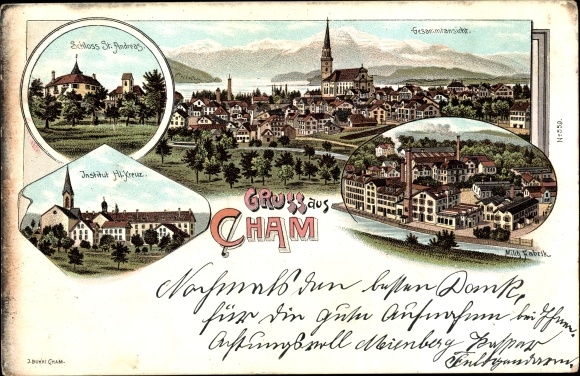 Schloss St. Andreas.
Gesammtansicht.
No 559.
Institut Hl. Kreuz.
Gruss aus
CHAM
Milch Fabrik.
Nochmals den besten Dank,
für die gute Aufnahmen bei Ihnen
Achtungsvoll Meienberg Kaspar
J. BURRI CHAM.